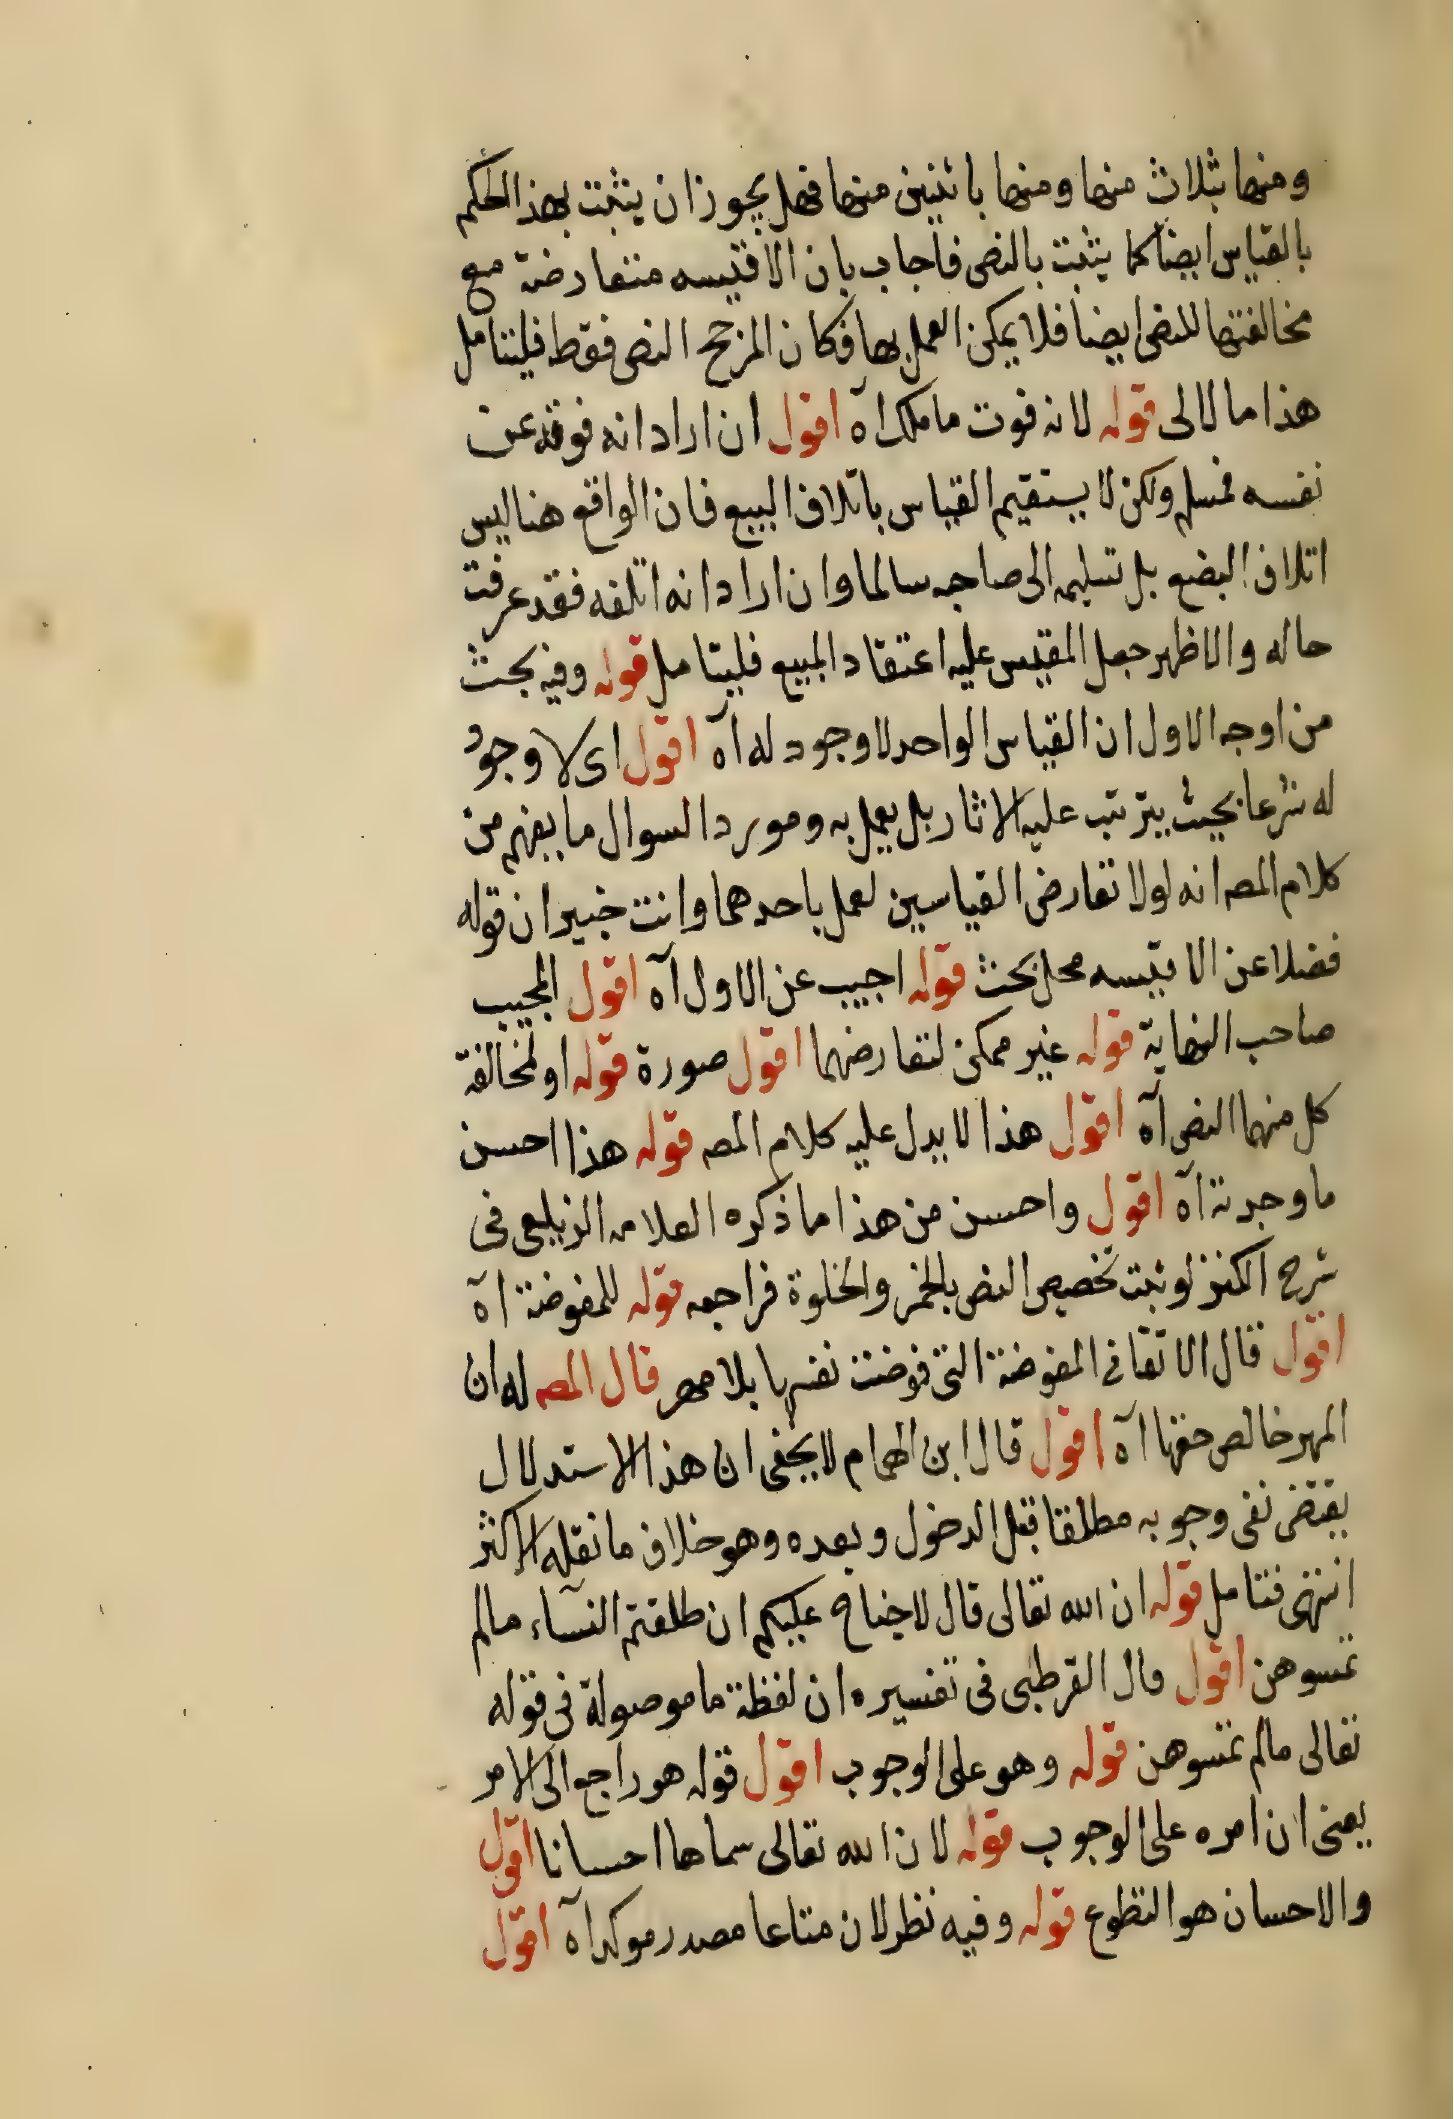 ومنها بثلاث منها ومنها باثنين منها فهل يجوز ان يثبت بهذا الحكم
بالقياس ايضا كما يثبت بالنص فاجاب بان الاقيسه متعارضة مع
مخالفتها للنص ايضا فلا يمكن العمل بها فكان المرجح النص فقط فليتامل
هذا ما لالى قوله لانه فوت ما ملك اه اقول ان اراد انه فوته عن
نفسه فمسلم ولكن لا يستقيم القياس باتلاف المبيع فان الواقع هنا ليس
اتلاف البضع بل تسليمه الى صاحبه سالما وان اراد انه اتلفه فقد عرفت
حاله والاظهر جعل المقيس عليه اعتقاد المبيع فليتامل قوله وفيه بحث
من اوجه الاول ان القياس الواحد لا وجود له آه اقول اى لا وجود
له شرعا بحيث يترتب عليه الاثار بل يعمل به ومورد السوال ما يفهم من
كلام المصه انه لولا تعارض القياسين لعمل باحدهما وانت خبير ان قوله
فضلا عن الاقيسه محل بحث قوله اجيب عن الاول آه اقول المجيب
صاحب النهاية قوله غير ممكن لتعارضهما اقول صورة قوله او لمخالفة
كل منهما النص آه اقول هذا لا يدل عليه كلام المصه قوله هذا احسن
ما وجدته آه اقول واحسن من هذا ما ذكره العلامه الزيلعى فى
شرح الكنز لو ثبت تخصيص النص بالخمر والخلوة فراجعه قوله للمفوضة آه
اقول قال الاتقانى المفوضة التى فوضت نفسها بلا مهر قال المصه له ان
المهر خالص حقها آه اقول قال ابن الهمام لا يخفى ان هذا الاستدلال
يقتضى نفى وجوبه مطلقا قبل الدخول وبعده وهو خلاف ما نقله الاكثر
انتهى فتامل قوله ان الله تعالى قال لا جناح عليكم ان طلقتم النسآء مالم
تمسوهن اقول قال القرطبى فى تفسيره ان لفظة ما موصولة فى قوله
تعالى مالم تمسوهن قوله وهو على الوجوب اقول قوله هو راجع الى الامر
يعنى ان امره على الوجوب قوله لان الله تعالى سماها احسانا اقول
والاحسان هو التطوع قوله وفيه نظر لان متاعا مصدر موكد آه اقول